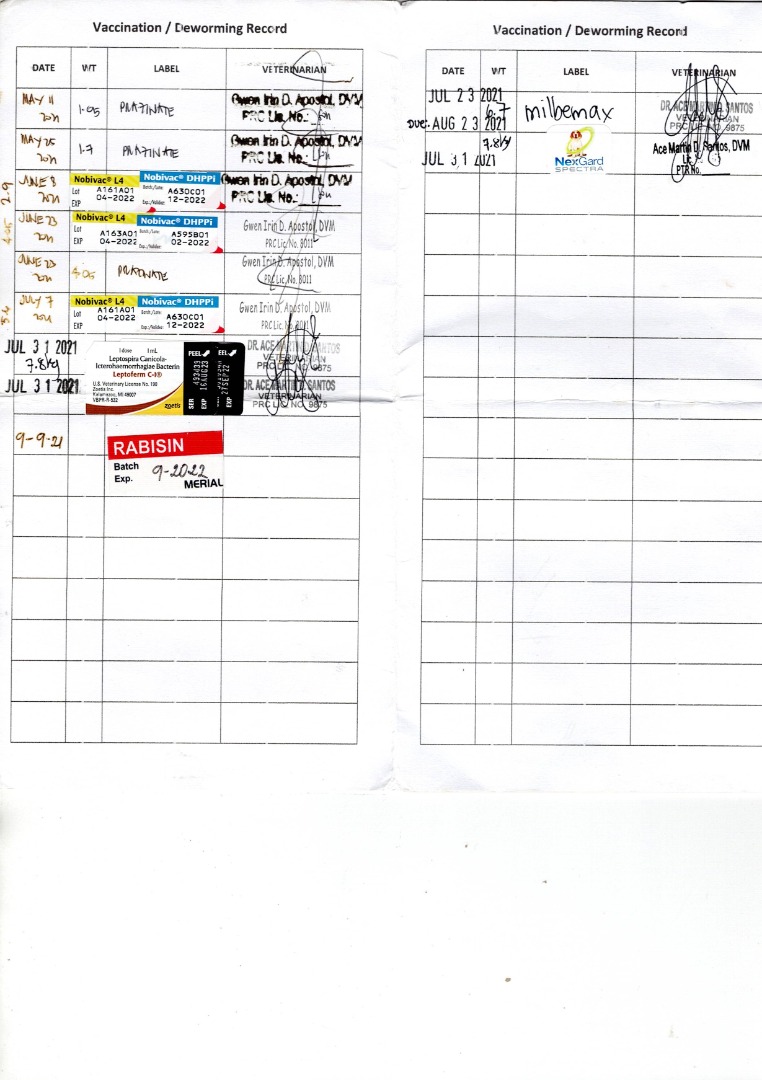 Vaccination / Deworming Record
DATE WT LABEL VETERINARIAN
MAY 11 2021 1.05 PRAZINATE Gwen Irin D. Apostol, DVM
PRC Lic. No.:
MAY 25 2021 1.7 PRAZINATE Gwen Irin D. Apostol, DVM
PRC Lic. No.:
2.9 JUNE 8 2021 Nobivac® L4 Nobivac® DHPPi Gwen Irin D. Apostol, DVM
Lot A161A01 Batch/Lote: A630C01 PRC Lic. No.:
EXP 04-2022 Exp./Validez: 12-2022
4.05 JUNE 23 2021 Nobivac® L4 Nobivac® DHPPi Gwen Irin D. Apostol, DVM
Lot A163A01 Batch/Lote: A595B01 PRC Lic. No. 8011
EXP 04-2022 Exp./Validez: 02-2022
JUNE 23 2021 4.05 PRAZINATE Gwen Irin D. Apostol, DVM
PRC Lic. No. 8011
JULY 7 2021 Nobivac® L4 Nobivac® DHPPi Gwen Irin D. Apostol, DVM
Lot A161A01 Batch/Lote: A630C01 PRC Lic. No. 8011
EXP 04-2022 Exp./Validez: 12-2022
JUL 31 2021
7.8kg
1 dose 1 mL
Leptospira Canicola-
Icterohaemorrhagiae Bacterin
Leptoferm C-I®
U.S. Veterinary License No. 190
Zoetis Inc.
Kalamazoo, MI 49007
VBPR-R
zoetis
PEEL
SER
EXP
EEL
EXP 27SEP22
DR. ACE MARTIN D. SANTOS
VETERINARIAN
PRC LIC NO. 9875
JUL 31 2021
DR. ACE MARTIN D. SANTOS
VETERINARIAN
PRC LIC NO. 9875
9-9-21
RABISIN
Batch
Exp. 9-2022
MERIAL
Vaccination / Deworming Record
DATE WT LABEL VETERINARIAN
JUL 23 2021 6.7 milbemax DR. ACE MARTIN D. SANTOS
VETERINARIAN
DUE: AUG 23 2021 PRC LIC NO. 9875
JUL 31 2021 7.8kg NexGard
SPECTRA
Ace Martin D. Santos, DVM
Lic
PTR No.